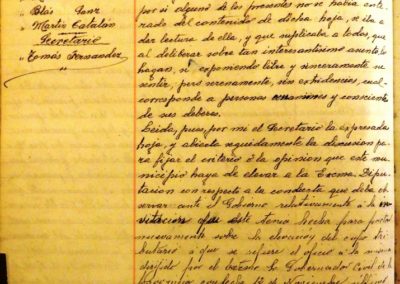 " Blas Sanz
" Martín Catalán
Secretario
" Tomás Fernandez
por si alguno de los presentes no se había ente-
rado del contenido de dicha hoja, se iba a
dar lectura de ella, y que suplicaba a todos, que
al deliberar sobre tan interesantísimo asunto, lo
hagan, si exponiendo libre y sinceramente su
sentir, pero serenamente, sin estridencias, cual
corresponde a personas y conscientes
de sus deberes.
Leida, pues, por mi el Secretario la expresada
hoja, y abierta seguidamente la discusion para
para fijar el criterio ó la opinion que este mu-
nicipio haya de elevar a la Excma. Dipu-
tacion con respecto a la conducta que deba ob-
servar ante el Gobierno relativamente á la in-
vitación que este tenia hecha para
nuevamente sobre la elevación del cupo tri-
butario á que se refiere el oficio a la misma
dirigido por el Excmo. Sr. Gobernador Civil de la
fecha 12 de Noviembre último